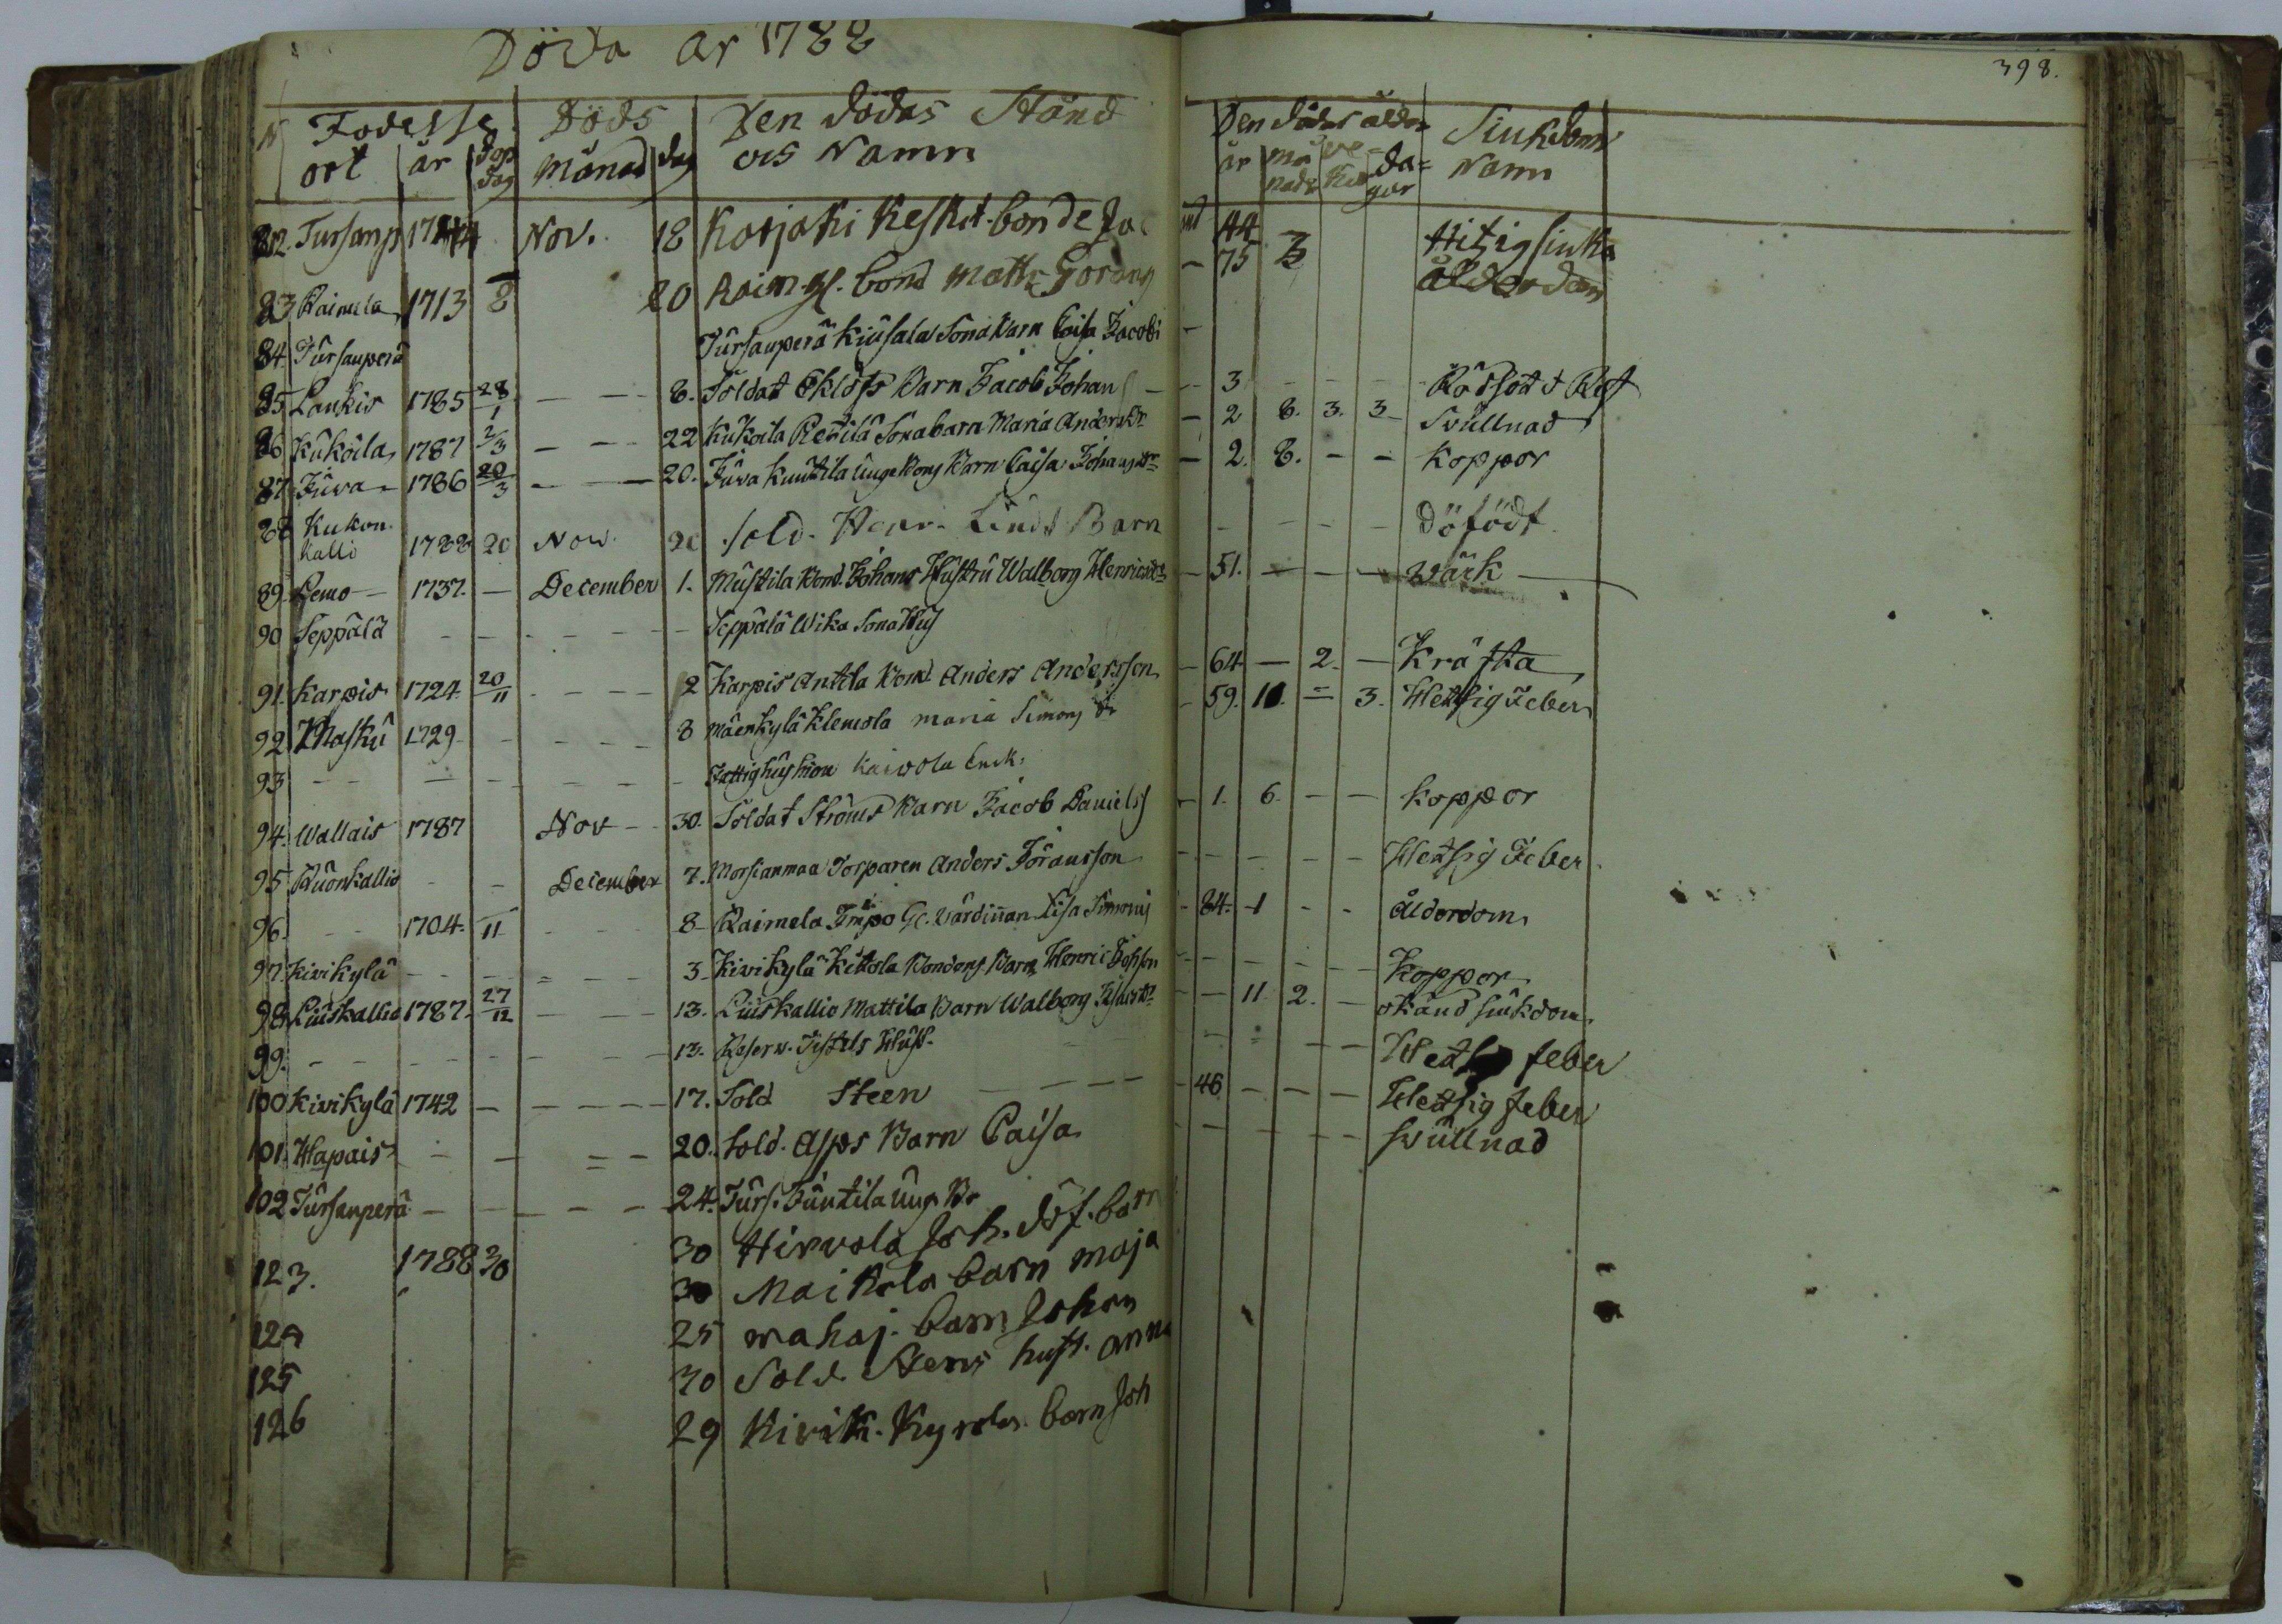 Döda år 1788
398.
N Födelse Döds Den dödas Stånd Den dödas ålder Siukdoms
ort år dop dag Månad dag och Namn år må nader ve= kor da= gar Namn
82. Tursanp 1744 Nov. 18 Karjaki Keskit. bonde Ja 44 Hitzig siuka
83 Raimela 1713 8 20 Raim. gl. bond Matts Görans - 75 3 ålderdom
84. Tursanperä Tursanperä Kiusala Sona Barn Caisa Jacobi -
85 Laukis 1785 28/1 - - 8. Soldat Eklöfs Barn Jacob Johans - - 3 - - - Rödsot &
86 Kukoila 1787 2/3 - - 22 Kukoila Sonabarn Maria Andersdr - 2 8. 3. 3 Svullnad
87 Juva - 1786 20/3 - - 20. Juva Kunttila Unga Bons Barn Caisa Johansdr - 2. 8. - - Koppor
88 Kukon kallio 1788 20 Nov. 20 Sold. Henr. Linds Barn - - - - döfödt
89. Lemo - 1737. - December 1. Mustila Bond. Johans Hustru Walborg Henricsdr - 51. - - - Wärk -
90 Seppälä - - - - - - Seppälä Wika Sona Hus
91. Karpis 1724. 20/11 - - - 2 Karpis Anttila Bond. Anders Andersson - 64 - 2. - Kräfta
92 Masku 1729 - - - - 8 Mäenkylä Klemola Maria Simons dr - 59. 10. = 3. Hetsig Feber
93 - - - - - - - Fattighushion Kaivola Enck.
94. Wallais 1787 Nov - - 30. Soldat Ströms Barn Jacob Daniels - 1. 6. - - Koppor
95 Ruonkallio - - December 7. Morsianmaa Torparen Anders Göransson - - - - - Hetsig Feber.
96. - - 1704. 11 - - - 8 Raimela Impo Gl. Värdinnan Lisa Simons - 84. 1 - - Ålderdom
97. Kivikylä - - - = - - 3. Kivikylä Kittola Bondens Barn Henric Johsson - - - - - Koppor
98 Luiskallio 1787. 27/12 - - - 13. Luiskallio Mattila Barn Walborg - - 11 2. - okänd siukdom
99. - - - - - - - 13. Reserv. Hust. - = - - Hetsig feber
100 Kivikylä 1742 - - - - - 17. Sold Steen - - - - 46 - - - Hetsig feber
101. Hapais - - = - 20. Sold. Asps Barn Caisa - - - - - Svullnad
102 Tursanperä - - - - - 24. Turs. Juntila Ung. Br
123. 1788 30 30 Hirvola Joh. döf. barn
30 Maikola barn Maja
124 25 wahaj. barn Johan
125 30 Sold. Stens hust. Anna
126 29 Kivik. Kyrola barn Joh